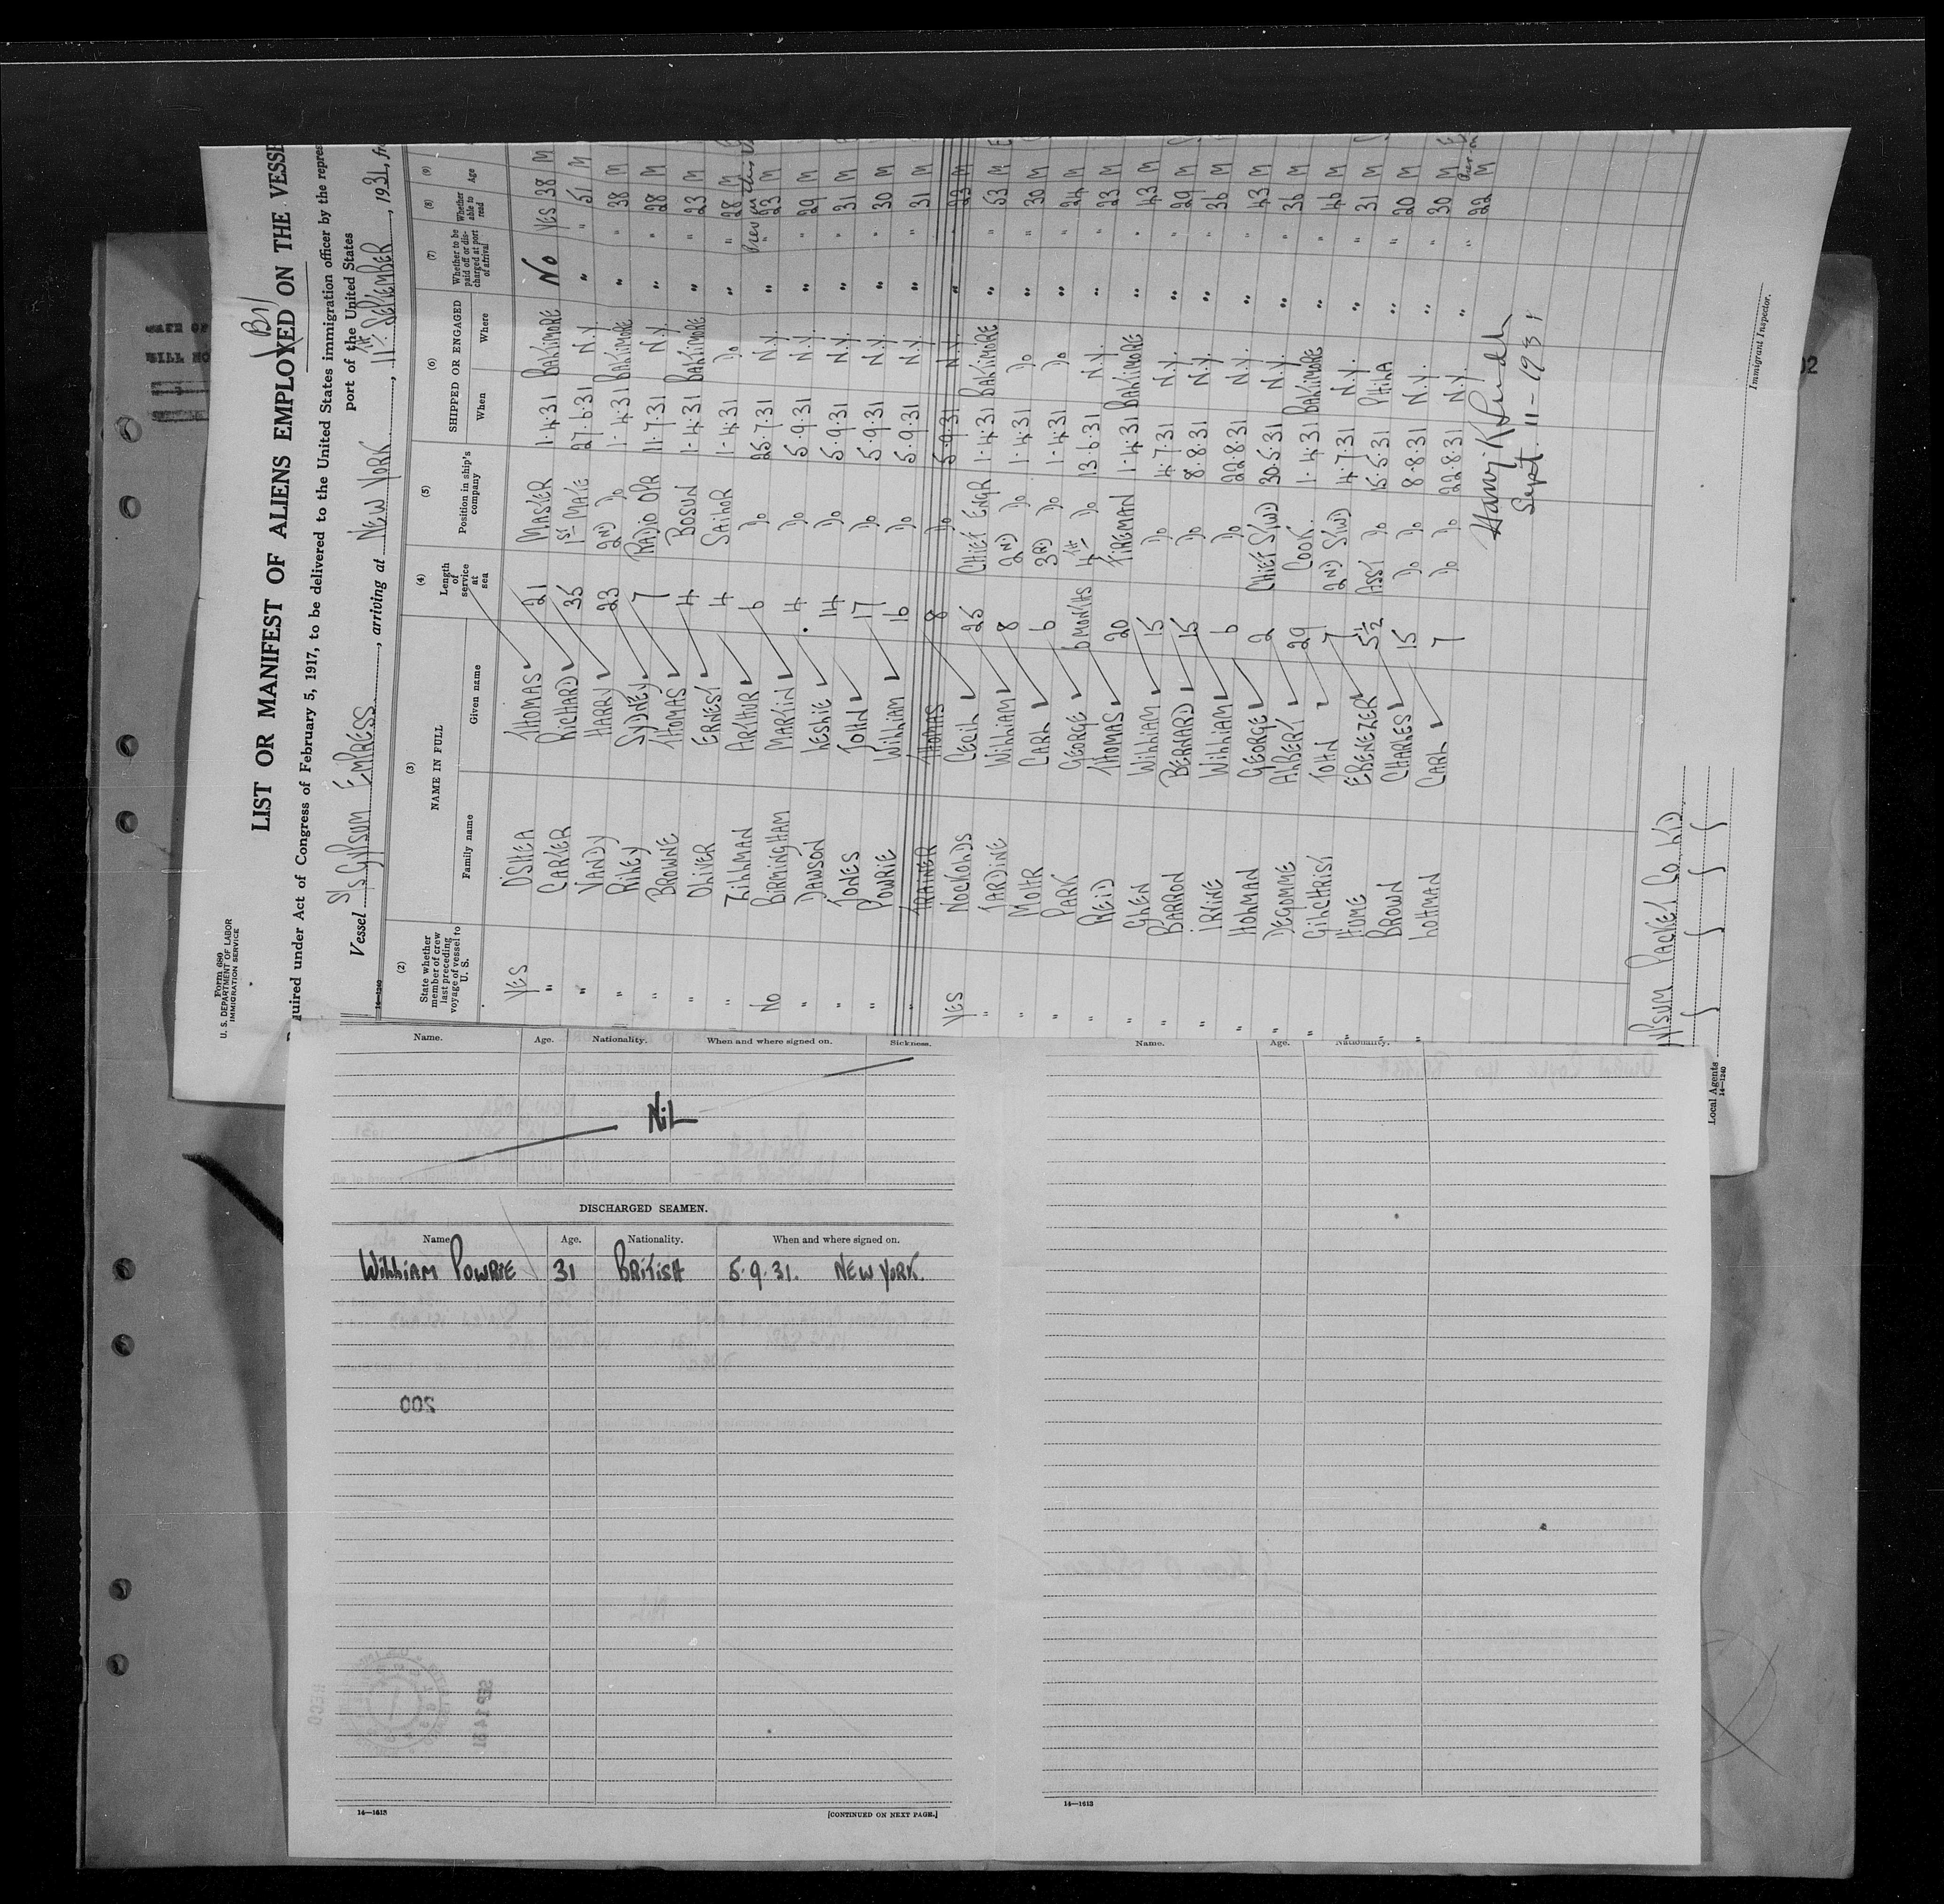 Form 680
U. S. DEPARTMENT OF LABOR
IMMIGRATION SERVICE
LIST OR MANIFEST OF ALIENS EMPLOYED ON THE VESSE
quired under Act of Congress of February 5, 1917, to be delivered to the United States immigration officer by the repres
port of the United States
Vessel S/S GYPSUM EMPRESS, arriving at NEW YORK, 11TH SEPTEMBER, 1931, fr
14-1240
(2) (3) (4) (5) (6) (7) (8) (9)
State whether member of crew last preceding voyage of vessel to U. S.
NAME IN FULL
Family name Given name
Length of service at sea
Position in ship's company
SHIPPED OR ENGAGED
When Where
Whether to be paid off or discharged at port of arrival
Whether able to read
Age
YES OSHEA THOMAS 21 MASTER 1.4.31 BALTIMORE NO YES 38 M
" CARTER RICHARD 35 1ST MATE 27.6.31 N.Y. " " 51 M
" VANDY HARRY 23 2ND DO 1.4.31 BALTIMORE " " 38 M
" RILEY SYDNEY 7 RADIO OPR 11.7.31 N.Y. " " 28 M
" BROWNE THOMAS 4 BOSUN 1.4.31 BALTIMORE " " 23 M
" OLIVER ERNEST 4 SAILOR 1.4.31 DO " " 28 M
No ZILLMAN ARTHUR 6 DO 25.7.31 N.Y. " " 23 M
" BIRMINGHAM MARTIN 4 DO 5.9.31 N.Y. " " 29 M
" DAWSON LESLIE 14 DO 5.9.31 N.Y. " " 31 M
" JONES JOHN 17 DO 5.9.31 N.Y. " " 30 M
" POWRIE WILLIAM 16 DO 5.9.31 N.Y. " " 31 M
TRAINER THOMAS 8 DO 5.9.31 N.Y. " " 23 M
YES NOCKOLDS CECIL 25 CHIEF ENGR 1.4.31 BALTIMORE " " 53 M
" JARDINE WILLIAM 8 2ND DO 1.4.31 DO " " 30 M
" MOHR CARL 6 3RD DO 1.4.31 DO " " 24 M
" PARK GEORGE 6 MONTHS 4TH DO 13.6.31 N.Y. " " 23 M
" REID THOMAS 20 FIREMAN 1.4.31 BALTIMORE " " 43 M
" GLEN WILLIAM 15 DO 4.7.31 N.Y. " " 29 M
" BARRON BERNARD 15 DO 8.8.31 N.Y. " " 36 M
" IRVINE WILLIAM 6 DO 22.8.31 N.Y. " " 43 M
" HOLMAN GEORGE 2 CHIEF STWD 30.5.31 N.Y. " " 36 M
" DEGOMME ALBERT 29 COOK. 1.4.31 BALTIMORE " " 46 M
" GILCHRIST JOHN 7 2ND STWD 4.7.31 N.Y. " " 31 M
" HUME EBENEZER 5½ ASST DO 15.5.31 PHILA " " 20 M
" BROWN CHARLES 15 DO 8.8.31 N.Y. " " 30 M
" LOHMAN CARL 7 DO 22.8.31 N.Y. " " 22 M
Sept. 11-1931
Immigrant Inspector.
YPSUM PACKET CO LTD
Local Agents
14-1240
Name. Age. Nationality. When and where signed on. Sickness.
NIL
DISCHARGED SEAMEN.
Name Age. Nationality. When and where signed on.
WILLIAM POWRIE 31 BRITISH 5.9.31. NEW YORK.
200
SEP 14 31
14—1613 [CONTINUED ON NEXT PAGE.]
Name. Age. Nationality.
14—1613